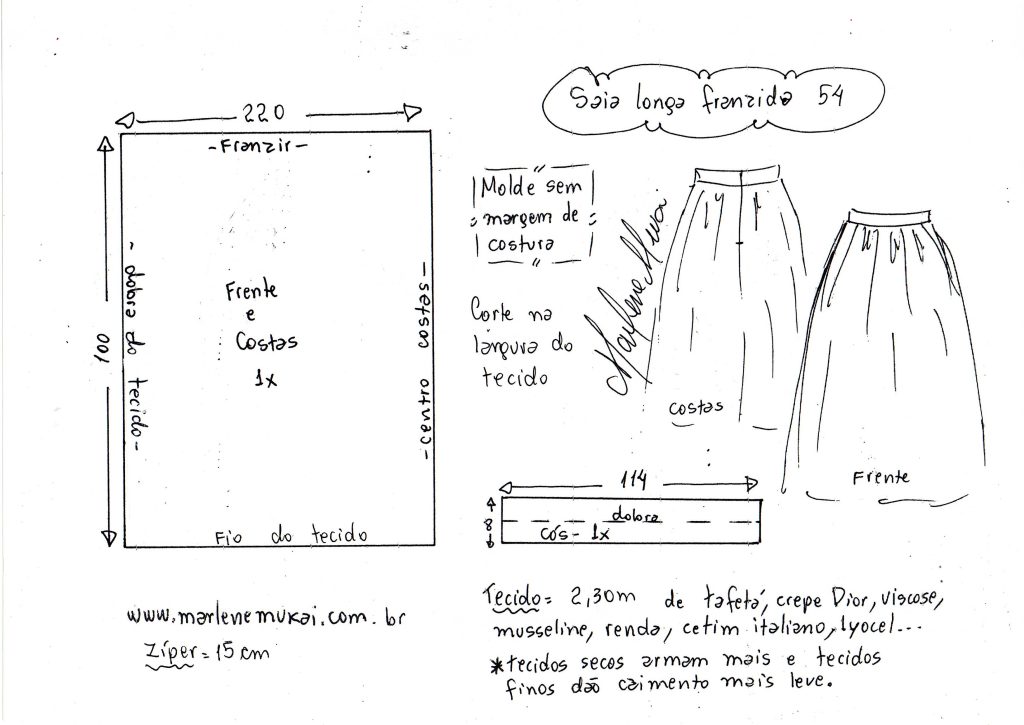 Saia longa franzida 54
220
-Franzir-
100
-dobra do tecido-
Frente
e
Costas
1x
-centro costas-
Fio do tecido
Molde sem
margem de
costura
Corte na
largura do
tecido
Marlene Mukai
costas
Frente
114
8
dobra
cós- 1x
www.marlenemukai.com.br
Zíper = 15 cm
Tecido = 2,30m de tafetá, crepe Dior, viscose,
musseline, renda, cetim italiano, lyocel...
*tecidos secos armam mais e tecidos
finos dão caimento mais leve.